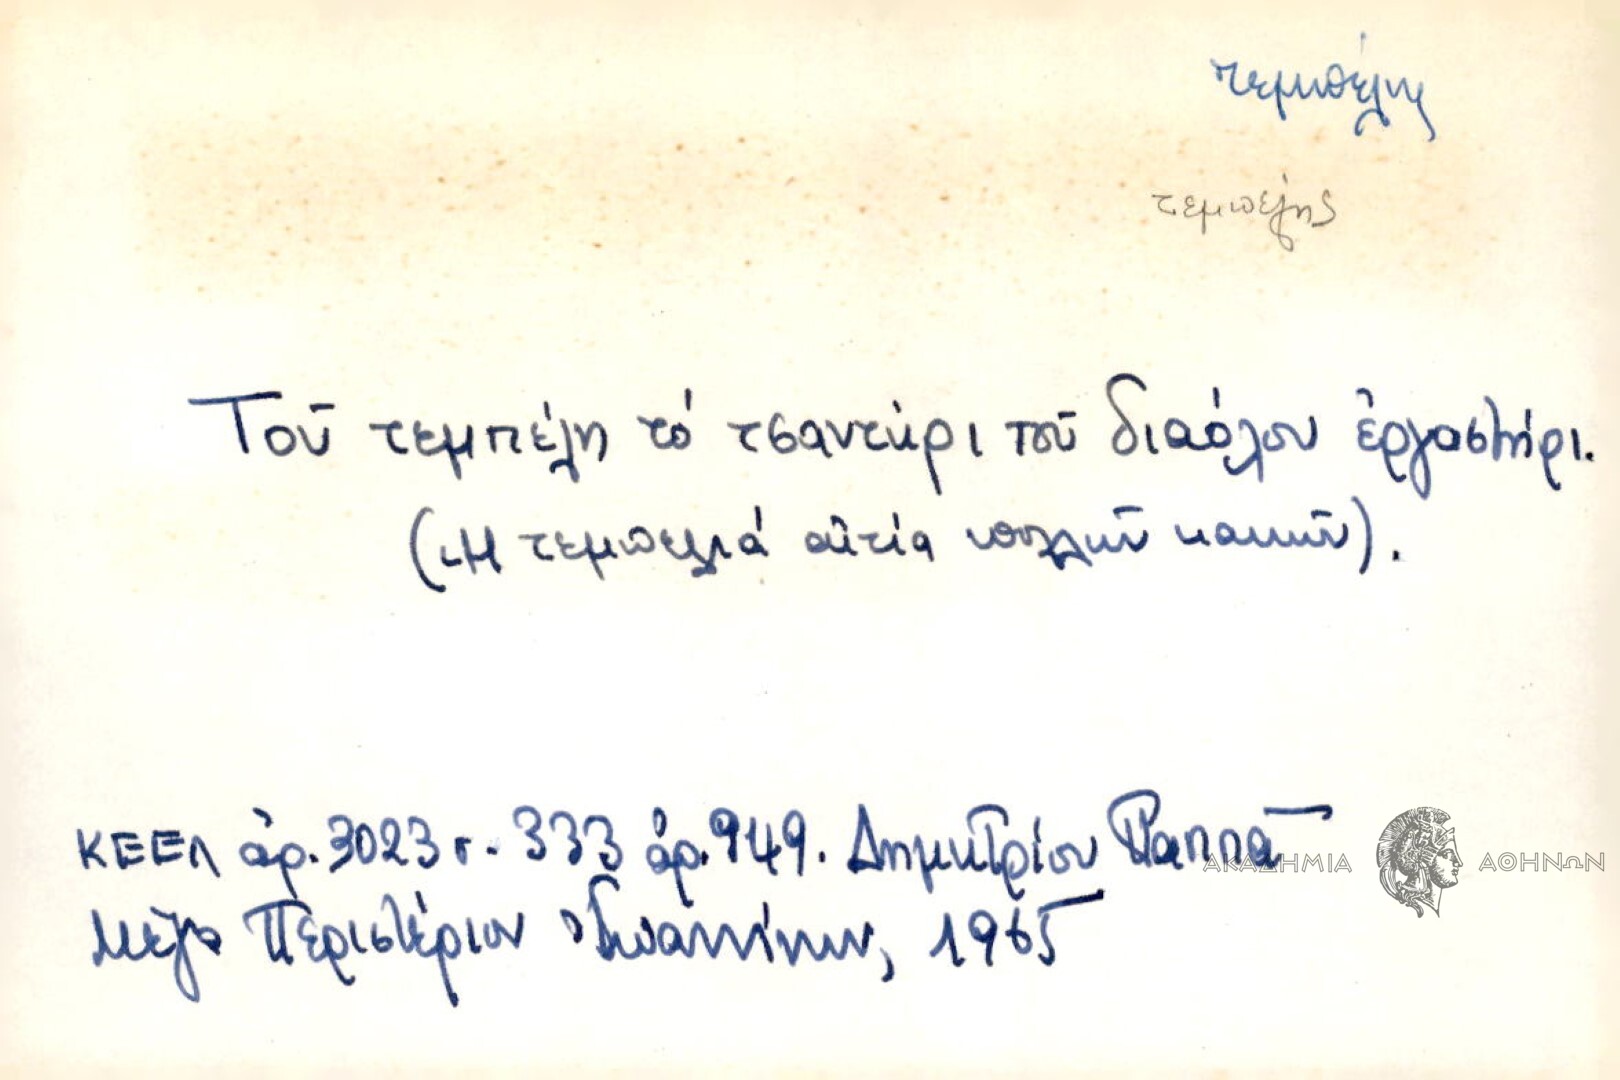 τεμπέλης
τεμπελης
Τοῦ τεμπέλη τό τσαντύρι τοῦ διαόλου ἐργαστήρι.
(Ἡ τεμπελιά αἰτία πολλῶν κακῶν).
ΚΕΕΛ ἀρ. 3023 σ. 333 ἀρ. 949. Δημητρίου Παππᾶ
ΑΚΑΔΗΜΙΑ ΑΘΗΝΩΝ
Μέγα Περιστέριον Ἰωαννίνων, 1965